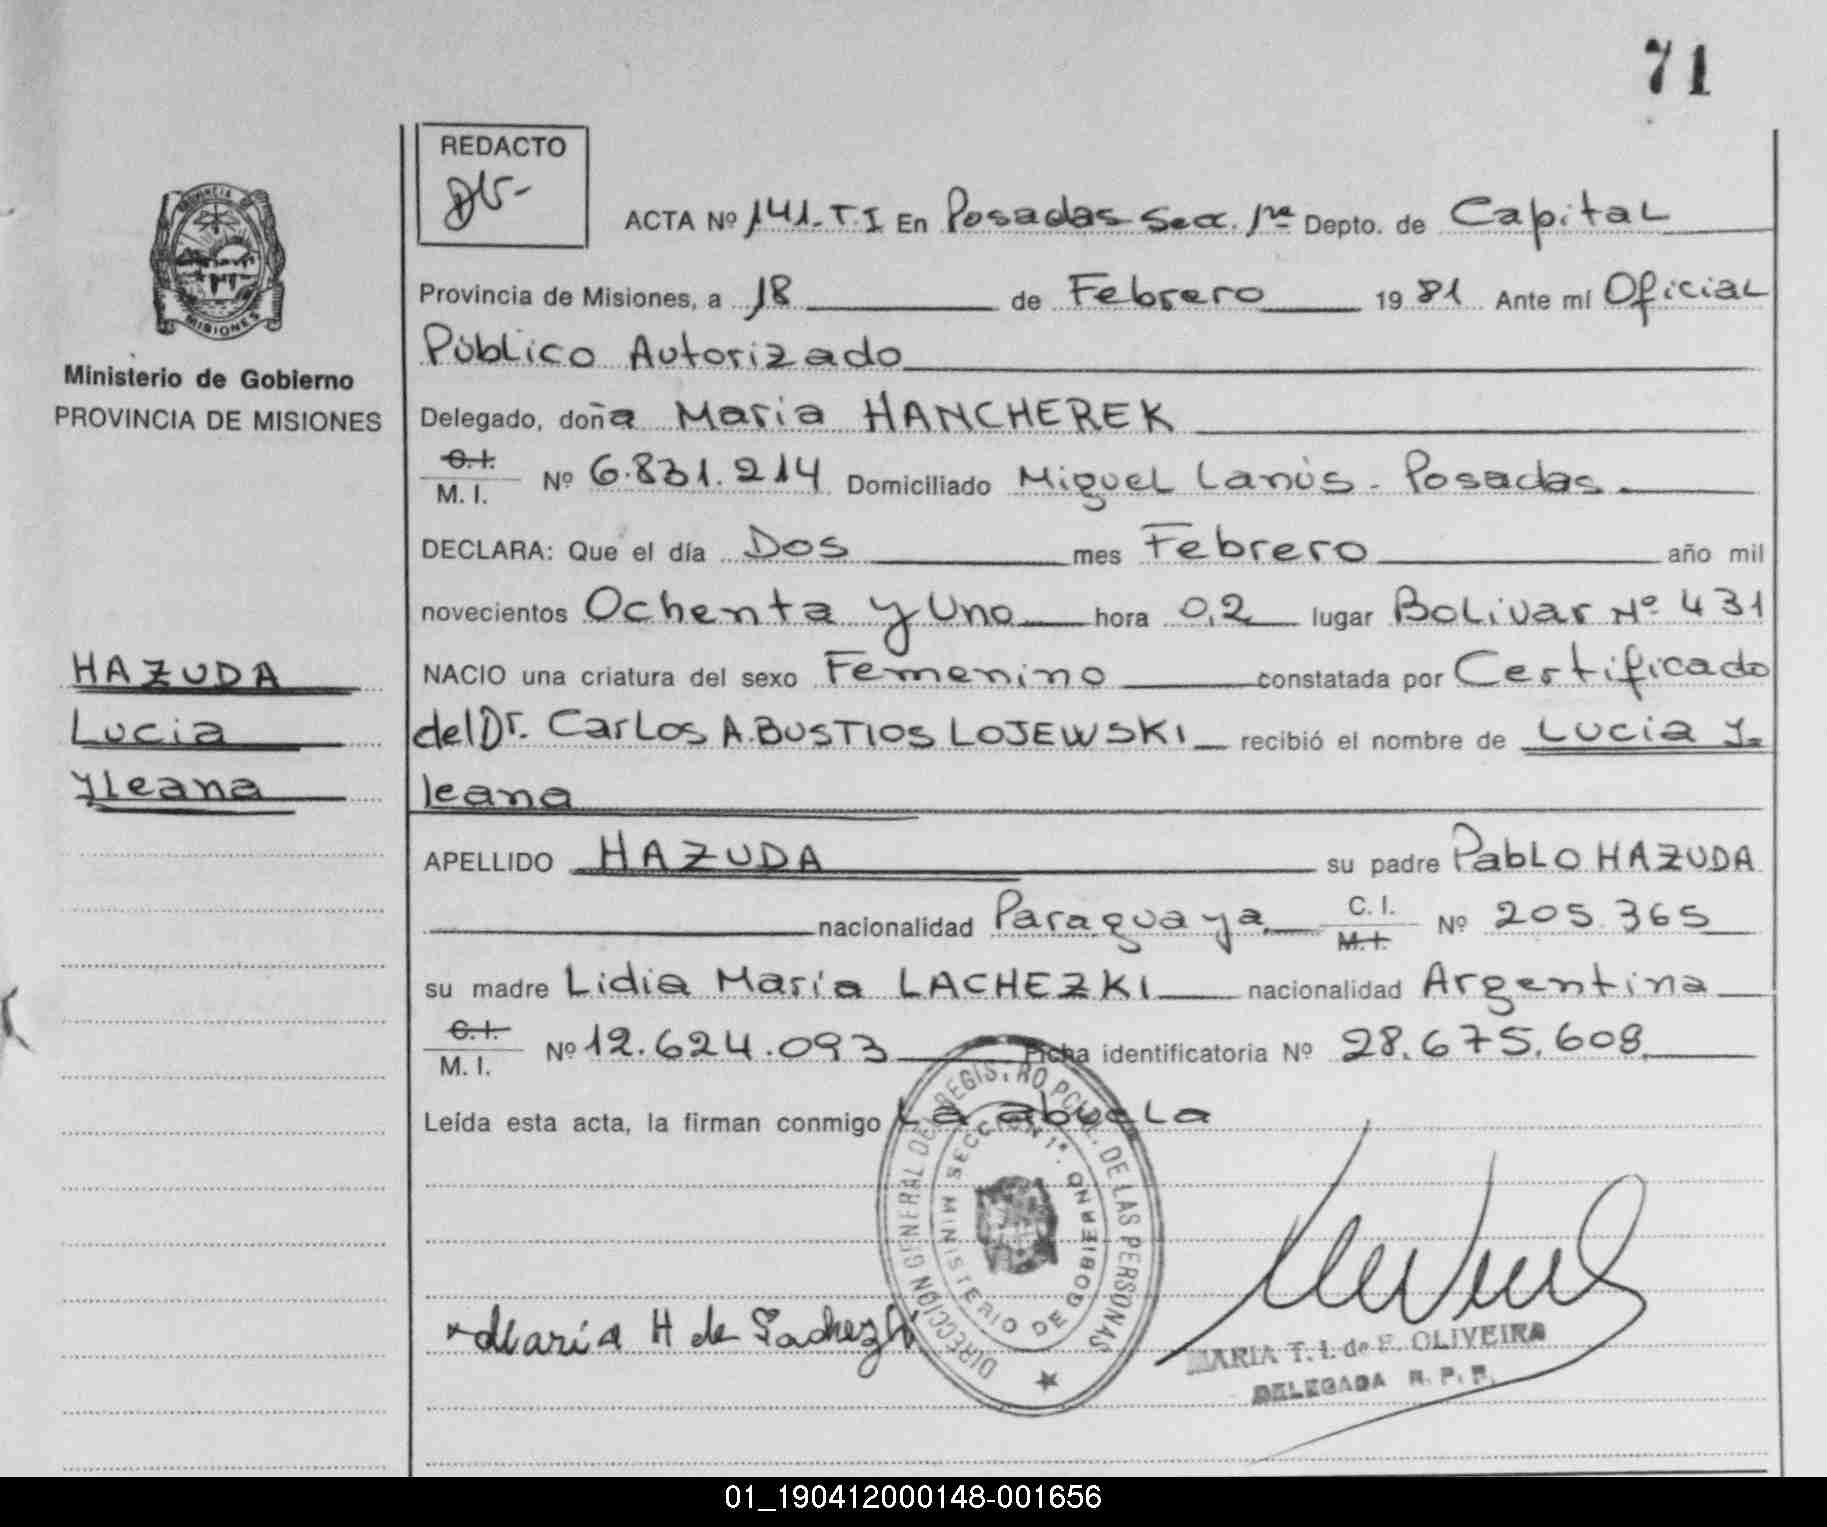 71
REDACTO
ACTA Nº 141-T.I En Posadas Secc. 1ra Depto. de Capital
Provincia de Misiones, a 18 de Febrero 1981 Ante mí Oficial
Público Autorizado
Delegado, doña Maria HANCHEREK
C.I.
M. I. Nº 6.831.214 Domiciliado Miguel Lanús - Posadas
DECLARA: Que el día Dos mes Febrero año mil
novecientos Ochenta y Uno hora 0,2 lugar Bolivar Nº 431
NACIO una criatura del sexo Femenino constatada por Certificado
del Dr. Carlos A. BUSTIOS LOJEWSKI recibió el nombre de Lucia Y-
leana
APELLIDO HAZUDA su padre Pablo HAZUDA
nacionalidad Paraguaya C. I. Nº 205.365
M.I.
su madre Lidia María LACHEZKI nacionalidad Argentina
C.I.
M. I. Nº 12.624.093 Ficha identificatoria Nº 28.675.608
Leída esta acta, la firman conmigo La abuela
María H de Lachezki
MARIA T. I. de F. OLIVEIRA
DELEGADA R. P. P.
DIRECCION GENERAL DEL REGISTRO PCIAL. DE LAS PERSONAS
SECCION 1ª.
MINISTERIO DE GOBIERNO
PROVINCIA DE
MISIONES
Ministerio de Gobierno
PROVINCIA DE MISIONES
HAZUDA
Lucia
Yleana
01_190412000148-001656